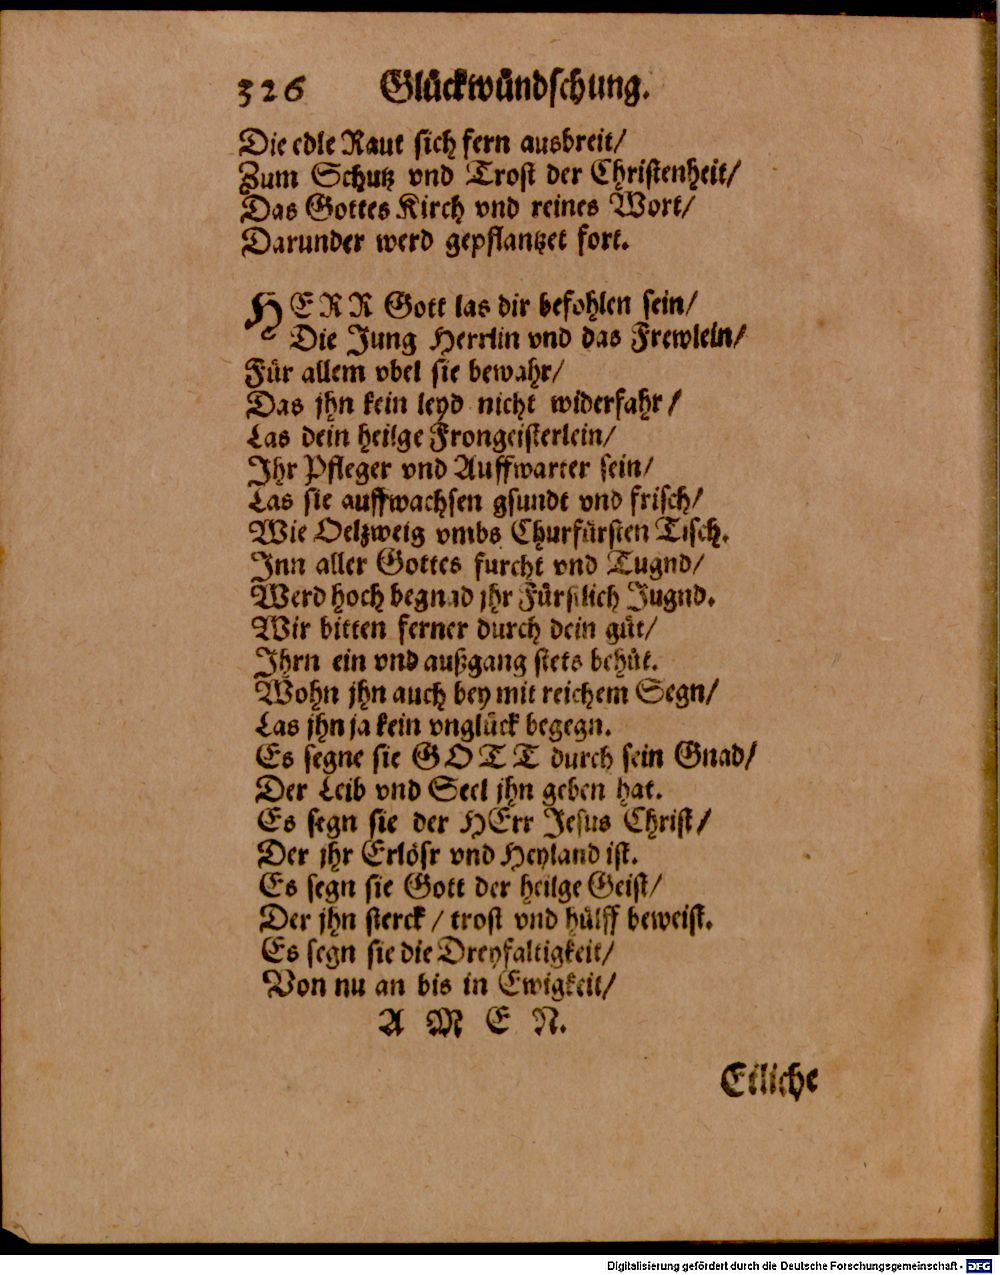 326 Glückwündschung.
Die edle Raut sich fern ausbreit/
Zum Schutz vnd Trost der Christenheit/
Das Gottes Kirch vnd reines Wort/
Darunder werd gepflantzet fort.
HERR Gott las dir befohlen sein/
Die Jung Herrlin vnd das Frewlein/
Für allem vbel sie bewahr/
Das jhn kein leyd nicht widerfahr/
Las dein heilge Frongeisterlein/
Ihr Pfleger vnd Auffwarter sein/
Las sie auffwachsen gsundt vnd frisch/
Wie Oelzweig vmbs Churfürsten Tisch.
Inn aller Gottes furcht vnd Tugnd/
Werd hoch begnad jhr Fürstlich Jugnd.
Wir bitten ferner durch dein güt/
Ihrn ein vnd außgang stets behüt.
Wohn jhn auch bey mit reichem Segn/
Las jhn ja kein vnglück begegn.
Es segne sie GOTT durch sein Gnad/
Der Leib vnd Seel jhn geben hat.
Es segn sie der HErr Jesus Christ/
Der jhr Erlösr vnd Heyland ist.
Es segn sie Gott der heilge Geist/
Der jhn sterck/ trost vnd hülff beweist.
Es segn sie die Dreyfaltigkeit/
Von nu an bis in Ewigkeit/
AMEN.
Etliche
Digitalisierung gefördert durch die Deutsche Forschungsgemeinschaft - DFG